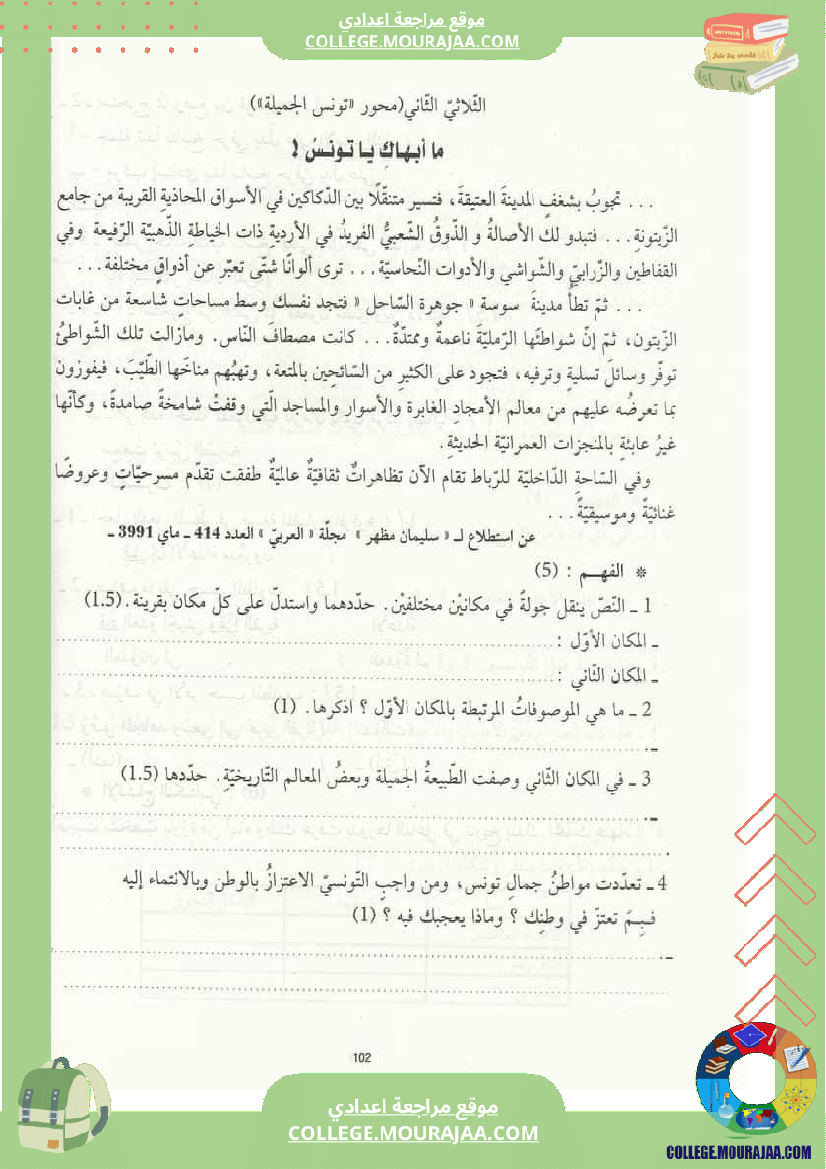 موقع مراجعة اعدادي
COLLEGE.MOURAJAA.COM
الثّلاثيّ الثّاني(محور «تونس الجميلة»)
ما أبهاكِ يا تونسُ !
... تجوبُ بشغفٍ المدينةَ العتيقةَ، فتسير متنقّلًا بين الدّكاكين في الأسواق المحاذيةِ القريبة من جامع
الزّيتونةِ... فتبدو لك الأصالةُ و الذّوقُ الشّعبيُّ الفريدُ في الأرديةِ ذات الخياطةِ الذّهبيّة الرّفيعة وفي
القفاطين والزّرابيّ والشّواشي والأدوات النّحاسيّة... ترى ألوانًا شتّى تعبّر عن أذواقٍ مختلفة...
... ثمّ تطأُ مدينةَ سوسة « جوهرة السّاحل » فتجد نفسك وسط مساحاتٍ شاسعة من غابات
الزّيتون، ثمّ إنّ شواطئَها الرّمليّةَ ناعمةٌ وممتدّةٌ... كانت مصطافَ النّاس. ومازالت تلك الشّواطئُ
توفّر وسائلَ تسليةٍ وترفيه، فتجود على الكثيرِ من السّائحين بالمتعة، وتهبُهم مناخَها الطّيّبَ، فيفوزون
بما تعرضُه عليهم من معالم الأمجادِ الغابرة والأسوار والمساجد الّتي وقفتْ شامخةً صامدةً، وكأنّها
غيرُ عابئةٍ بالمنجزات العمرانيّة الحديثةِ.
وفي السّاحةِ الدّاخليّة للرّباط تقام الآن تظاهراتٌ ثقافيّةٌ عالميّةٌ طفقت تقدّم مسرحيّاتٍ وعروضًا
غنائيّةً وموسيقيّةً...
عن استطلاع لـ « سليمان مظهر » مجلّة « العربيّ » العدد 414 ـ ماي 3991 ـ
* الفهـم : (5)
1 ـ النّصّ ينقل جولةً في مكانيْن مختلفيْن. حدّدهما واستدلّ على كلّ مكان بقرينة. (1.5)
ـ المكان الأوّل :
ـ المكان الثّاني :
2 ـ ما هي الموصوفاتُ المرتبطة بالمكان الأوّل ؟ اذكرها. (1)
3 ـ في المكان الثّاني وصفت الطّبيعةُ الجميلة وبعضُ المعالم التّاريخيّةِ. حدّدها (1.5)
4 ـ تعدّدت مواطنُ جمالِ تونس، ومن واجبِ التّونسيّ الاعتزازُ بالوطن وبالانتماء إليه
فـبِـمَ تعتزّ في وطنِك ؟ وماذا يعجبك فيه ؟ (1)
102
موقع مراجعة اعدادي
COLLEGE.MOURAJAA.COM
COLLEGE.MOURAJAA.COM